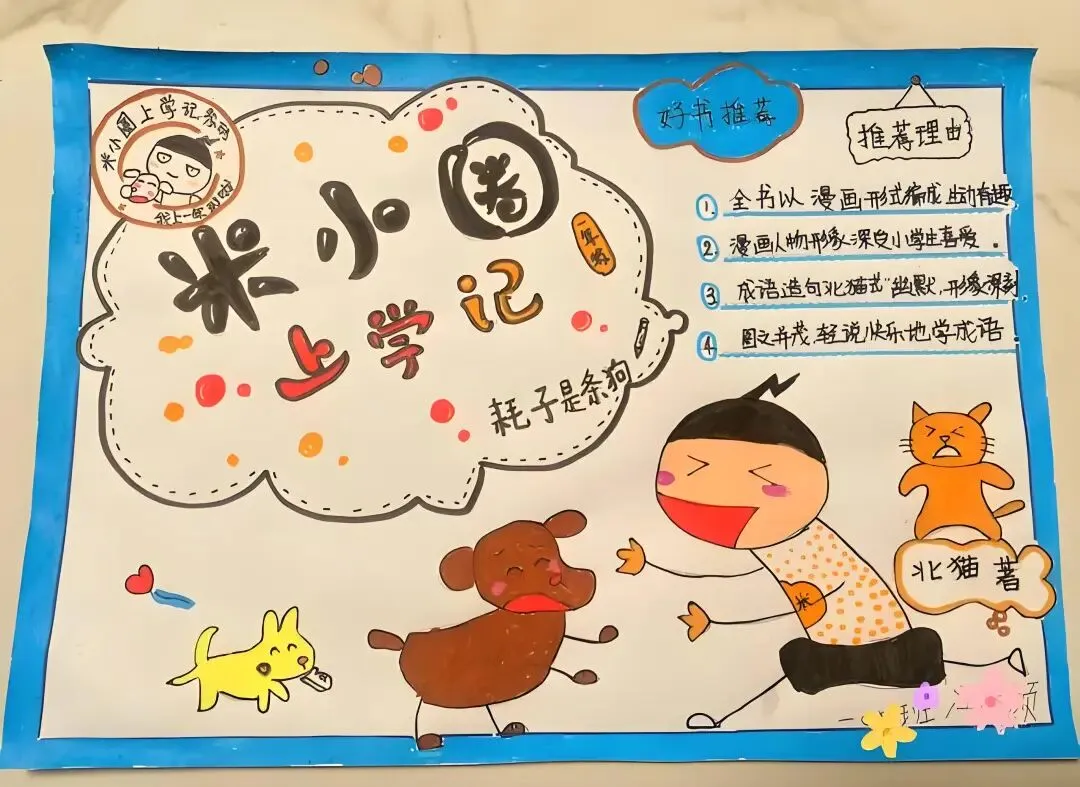 米小圈上学记
我上一年级啦
米小圈
上学记
一年级
耗子是条狗
好书推荐
推荐理由
1. 全书以漫画形式编成生动有趣
2. 漫画人物形象深良小学生喜爱.
3. 成语造句"北猫式"幽默,形象深刻
4. 图文并茂轻说快乐地学成语
米
北猫著
班